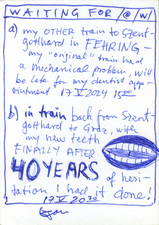 WAITING FOR @/W/
a) my OTHER train to Szent-
gotthard in FEHRING -
my "original" train had
a mechanical problem, will
be late for my dentist app-
ointment 17 V 2024 15:00
b) in train back from Szent-
gotthard to Graz, with
my new teeth
FINALLY AFTER
40 YEARS
of hesi-
tation I had it done!
17 V 20:30